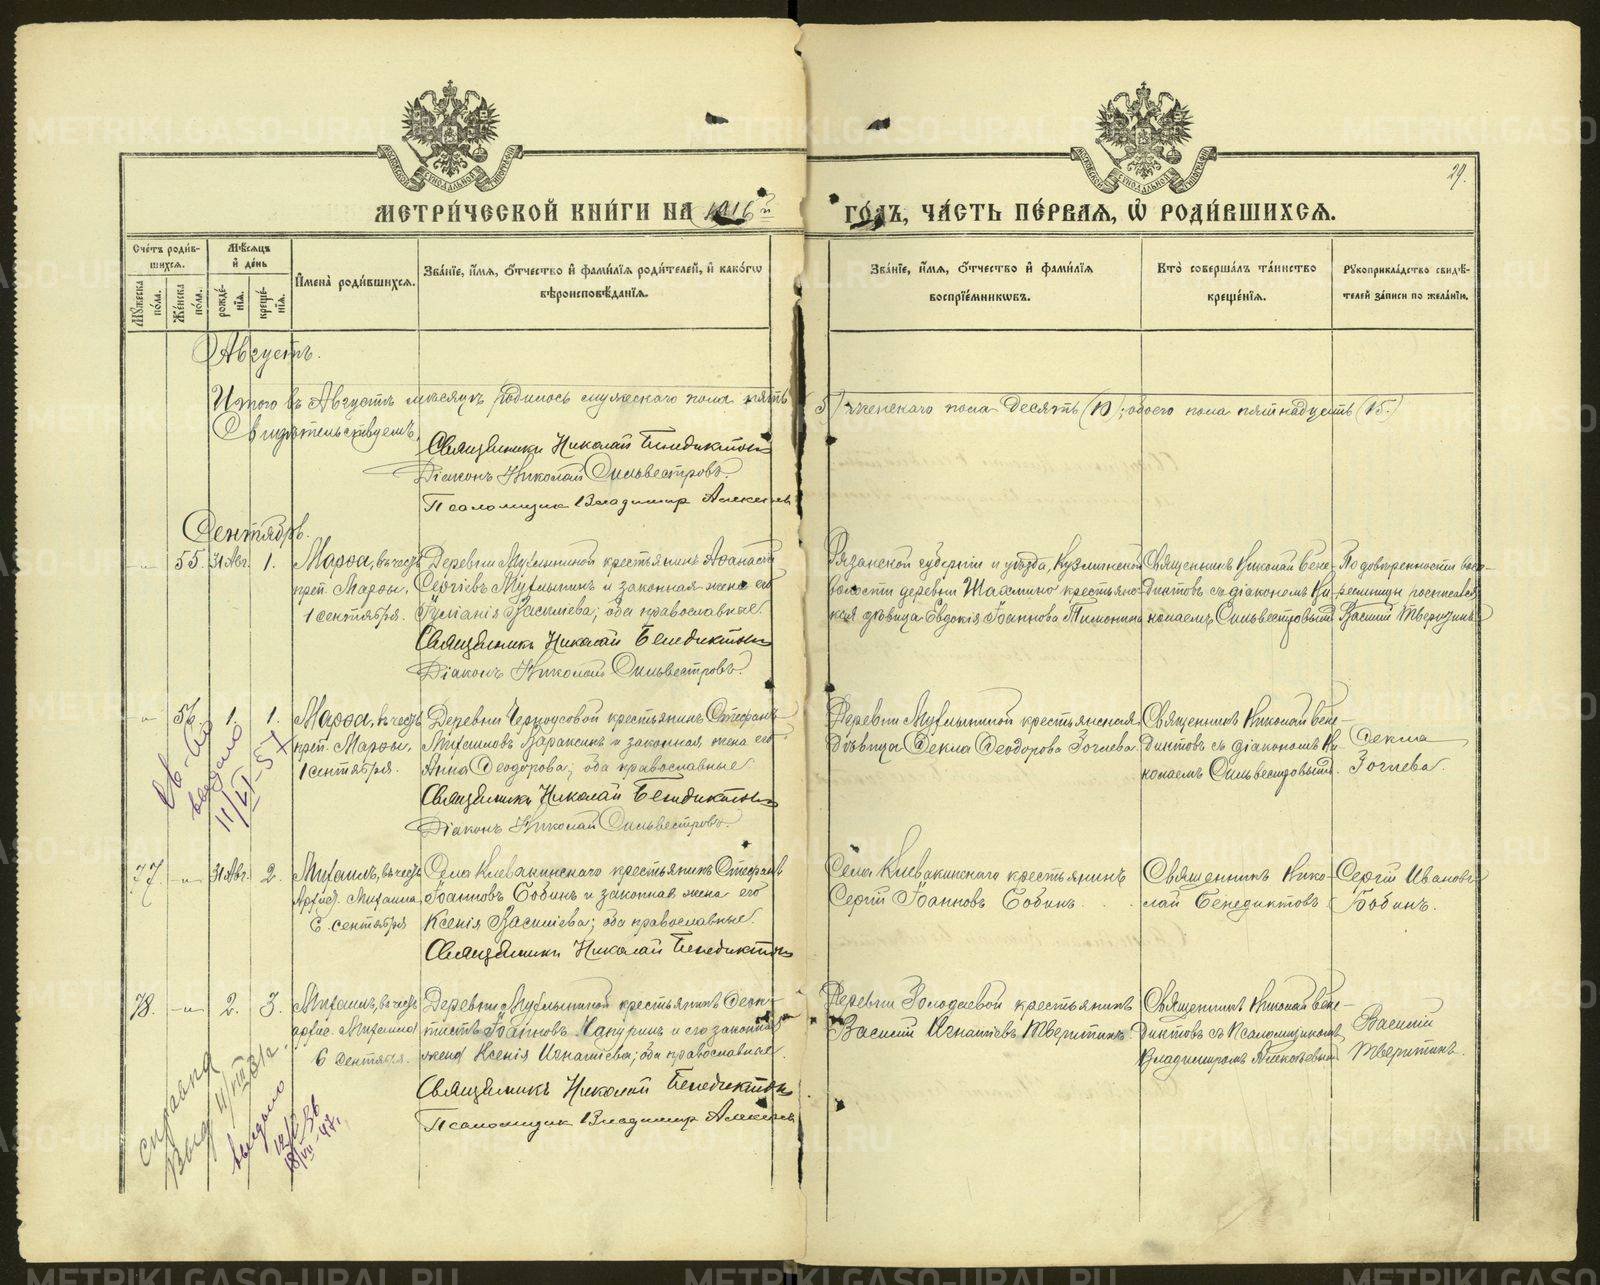 29.
МЕТРИ́ЧЕСКОЙ КНИ́ГИ НА 1916 й ГО́ДЪ, ЧА́СТЬ ПЕ́РВАЯ, Ѡ҆ РОДИ́ВШИХСЯ.
Сче́тъ роди́вшихся.
Мꙋ́жеска по́ла.
Же́нска по́ла.
Мѣ́сяцъ и҆ де́нь
рожде́нїя.
креще́нїя.
И҆мена̀ роди́вшихся.
Зва́нїе, и҆́мя, ѻ҆́тчество и҆ фами́лїя роди́телей, и҆ како́гѡ
вѣроисповѣ́данїя.
Зва́нїе, и҆́мя, ѻ҆́тчество и҆ фами́лїя
воспрїе́мникѡвъ.
Кто̀ соверша́лъ та́инство
креще́нїя.
Рꙋкоприкла́дство свидѣ́-
телей за́писи по жела́нїю.
Августъ.
Итого въ Августѣ мѣсяцѣ родилось мужескаго пола пять (5) женскаго пола десять (10); обоего пола пятнадцать (15.)
Свидѣтельствуемъ:
Священникъ Николай Бенедиктовъ
Діаконъ Николай Сильвестровъ.
Псаломщик Владимир Алексѣевъ
Сентябрь.
55. 31 Авг. 1.
Марѳа, въ честь
преп. Марѳы,
1 сентября.
Деревни крестьянинъ Аѳанасій
Сергіевъ и законная жена его
Іуліанія Васильева; оба православные.
Священникъ Николай Бенедиктовъ
Діаконъ Николай Сильвестровъ.
Рязанской губерніи и уѣзда, Кузминской
волости деревни крестьянс-
кая дѣвица Евдокія Іоаннова
Священникъ Николай Бене-
диктовъ съ діакономъ Ни-
колаемъ Сильвестровымъ
По довѣренности восп-
Василій
56. 1. 1.
Марѳа, въ честь
преп. Марѳы,
1 сентября.
Деревни Черноусовой крестьянинъ Стефанъ
и законная жена его
Анна Ѳеодорова; оба православные.
Священникъ Николай Бенедиктовъ
Діаконъ Николай Сильвестровъ.
Деревни крестьянская
дѣвица Ѳекла Ѳеодорова Зотеева.
Священникъ Николай Бене-
диктовъ съ діакономъ Ни-
колаемъ Сильвестровымъ.
Ѳекла
Зотеева.
выдано
11/VI-57
37. -„- 31 Авг. 2.
Михаилъ, въ честь
Архис. Михаила,
6 сентября
Села Клевакинскаго крестьянинъ Стефанъ
Іоанновъ Бобинъ и законная жена его
Ксенія Васильева; оба православные.
Священникъ Николай Бенедиктовъ
Села Клевакинскаго крестьянинъ
Сергій Іоанновъ Бобинъ.
Священникъ Нико-
лай Бенедиктовъ
Сергій Ивановъ
Бобинъ.
38. -„- 2. 3.
Михаилъ, въ честь
архис. Михаила
6 Сентября.
Деревни крестьянинъ
Іоанновъ и его законная
жена Ксенія Игнатіева; оба православные.
Священникъ Николай Бенедиктовъ
Псаломщик Владимир Алексѣевъ
Деревни Колодцевой крестьянинъ
Василій Игнатіевъ Тверитинъ.
Священникъ Николай Бене-
диктовъ съ Псаломщикомъ
Владимиромъ Алексѣевымъ
Василій
Тверитинъ.
справка
выдано
METRIKI.GASO-URAL.RU